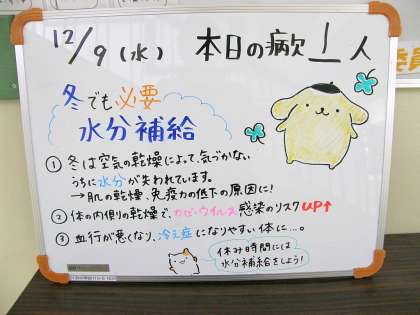 12/9(水) 本日の病欠 1人
冬でも必要
水分補給
① 冬は空気の乾燥によって、気づかない
うちに水分が失われています。
→肌の乾燥、免疫力の低下の原因に!
② 体の内側の乾燥で、カゼ・ウイルス感染のリスクUP↑
③ 血行が悪くなり、冷え症になりやすい体に…。
休み時間には
水分補給をしよう!
委員